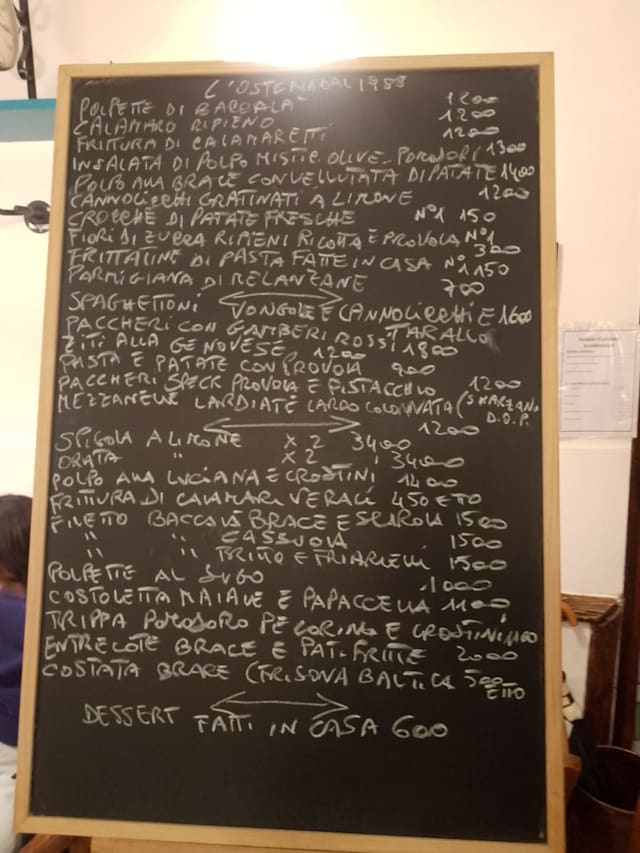 L'OSTERIA DAL 1988
POLPETTE DI BACCALÀ 1200
CALAMARO RIPIENO 1200
FRITTURA DI CALAMARETTI 1200
INSALATA DI POLPO MISTIC. OLIVE-POMODORI 1300
POLPO ALLA BRACE CON VELLUTATA DI PATATE 1400
CANNOLICCHI GRATINATI A LIMONE 1200
CROCCHÈ DI PATATE FRESCHE N°1 150
FIORI DI ZUCCA RIPIENI RICOTTA E PROVOLA N°1 300
FRITTATINE DI PASTA FATTE IN CASA N°1 150
PARMIGIANA DI MELANZANE 700
SPAGHETTONI VONGOLE E CANNOLICCHI E 1600
TARALLO
PACCHERI CON GAMBERI ROSSI 1800
ZITI ALLA GENOVESE 1200
PASTA E PATATE CON PROVOLA 900
PACCHERI SPECK PROVOLA E PISTACCHIO 1200
MEZZANELLI LARDIATE LARDO COLONNATA (S MARZANO D.O.P. 1200
SPIGOLA A LIMONE X 2 3400
ORATA " X 2 3400
POLPO ALLA LUCIANA E CROSTINI 1400
FRITTURA DI CALAMARI VERACI 450 ETTO
FILETTO BACCALÀ BRACE E SCAROLA 1500
" " CASSUOLA 1500
" " FRITTO E FRIARIELLI 1500
POLPETTE AL SUGO 1000
COSTOLETTA MAIALE E PAPACCELLA 1100
TRIPPA POMODORO PECORINO E CROSTINI 1100
ENTRECOTE BRACE E PAT. FRITTE 2000
COSTATA BRACE (FRISONA BALTICA 500 ETTO
DESSERT FATTI IN CASA 600